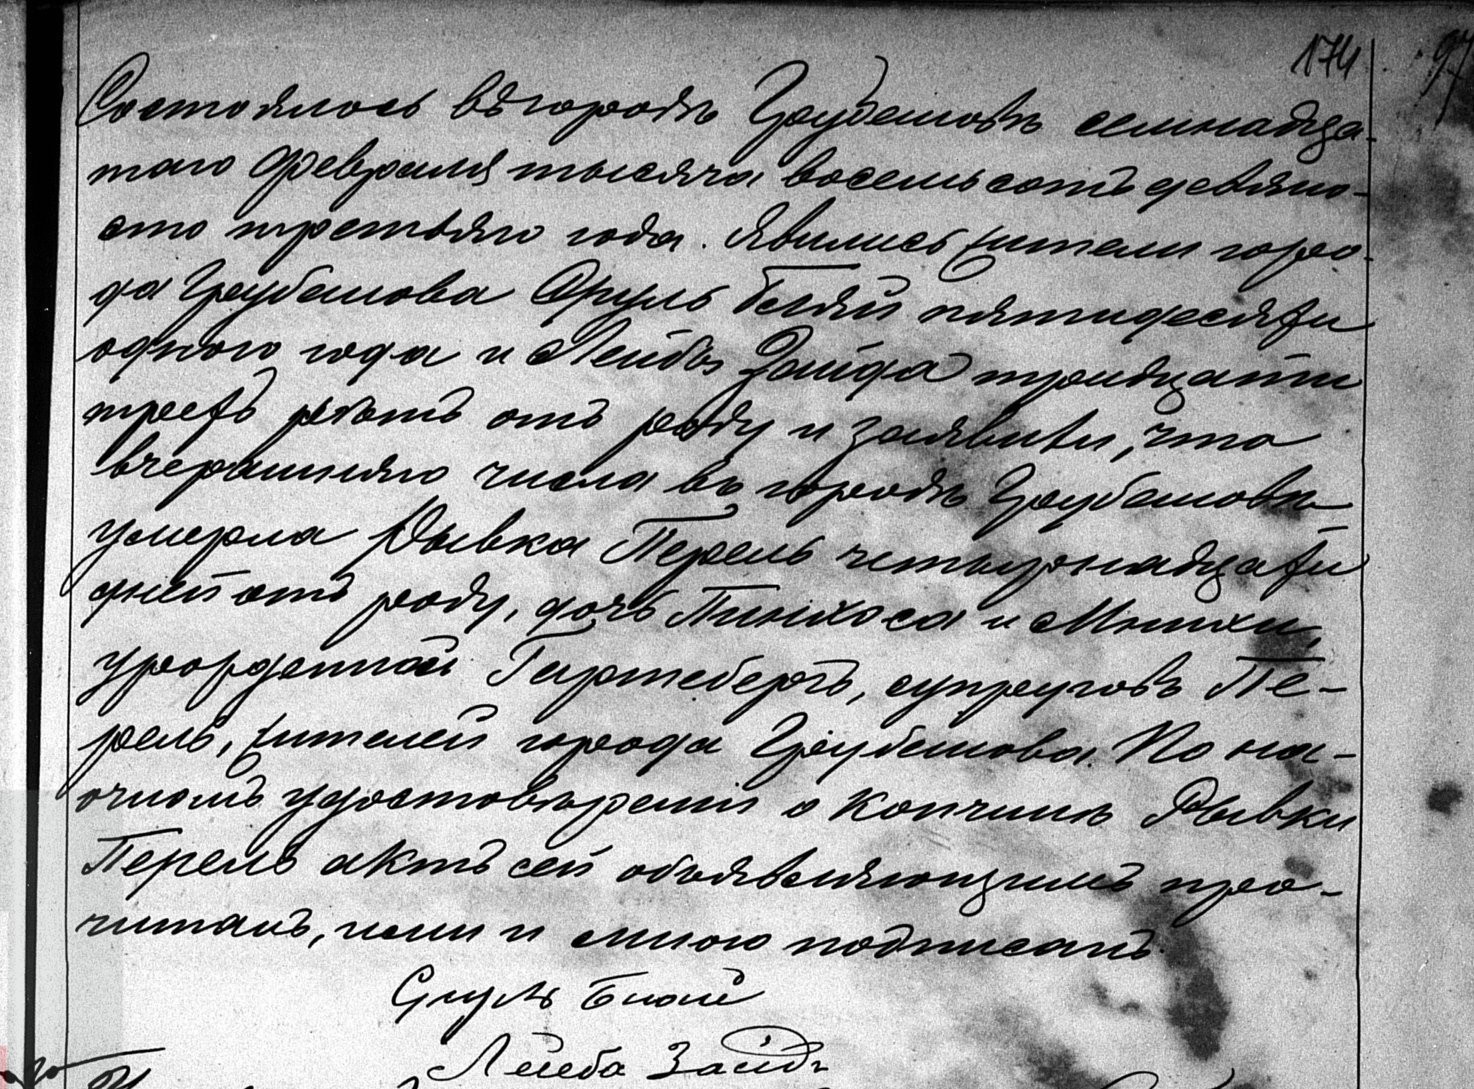 174
Состоялось въ городѣ Грубешовѣ семнадца-
таго Февраля тысяча восемьсотъ девяно-
сто третьяго года. Явились жители горо-
да Грубешова Сруль Бляй пятидесяти
одного года и Лейба Зайда тридцати
трехъ лѣтъ отъ роду и заявили, что
вчерашняго числа въ городѣ Грубешовѣ
умерла Рывка Перель четырнадцати
дней отъ роду, дочь Пинхоса и Минхи,
урожденной Гиртебергъ, супруговъ Пе-
рель, жителей города Грубешова. По на-
очномъ удостовѣреніи о кончинѣ Рывки
Перель актъ сей объявляющимъ про-
читанъ, ими и мною подписанъ.
Сруль
Лейба Зайдъ